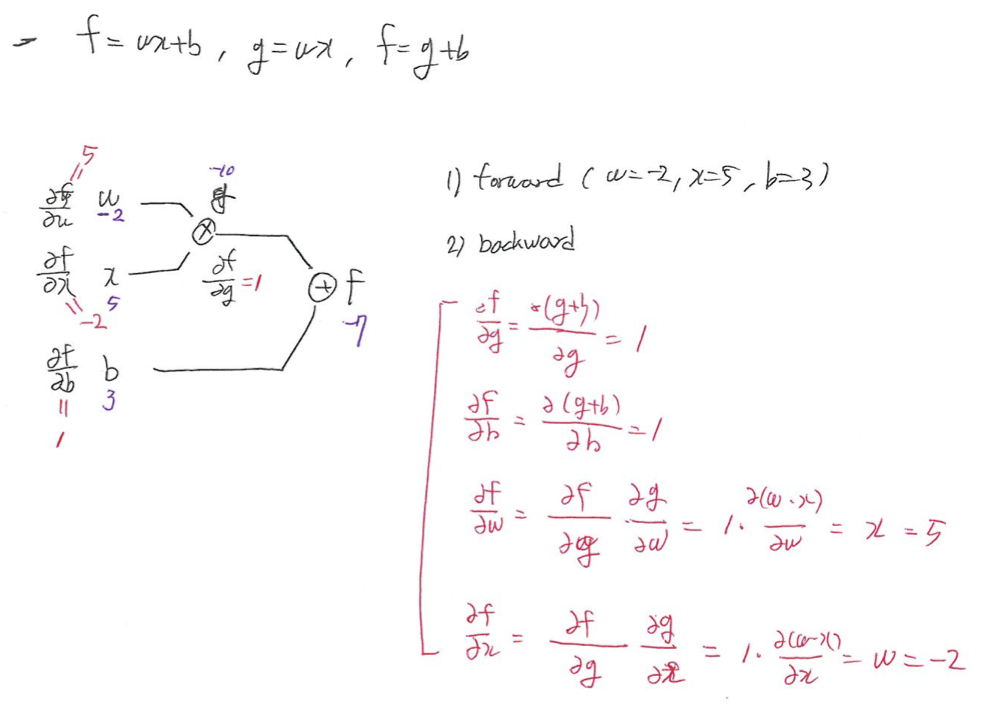 - f=wx+b, g=wx, f=g+b
5
=
∂f/∂w w -2
-10
g
×
∂f/∂x x 5
= -2
∂f/∂g = 1
+ f
-7
∂f/∂b b 3
=
1
1) forward (w=-2, x=5, b=3)
2) backward
∂f/∂g = ∂(g+b)/∂g = 1
∂f/∂b = ∂(g+b)/∂b = 1
∂f/∂w = ∂f/∂g · ∂g/∂w = 1 · ∂(w·x)/∂w = x = 5
∂f/∂x = ∂f/∂g ∂g/∂x = 1 · ∂(w·x)/∂x = w = -2